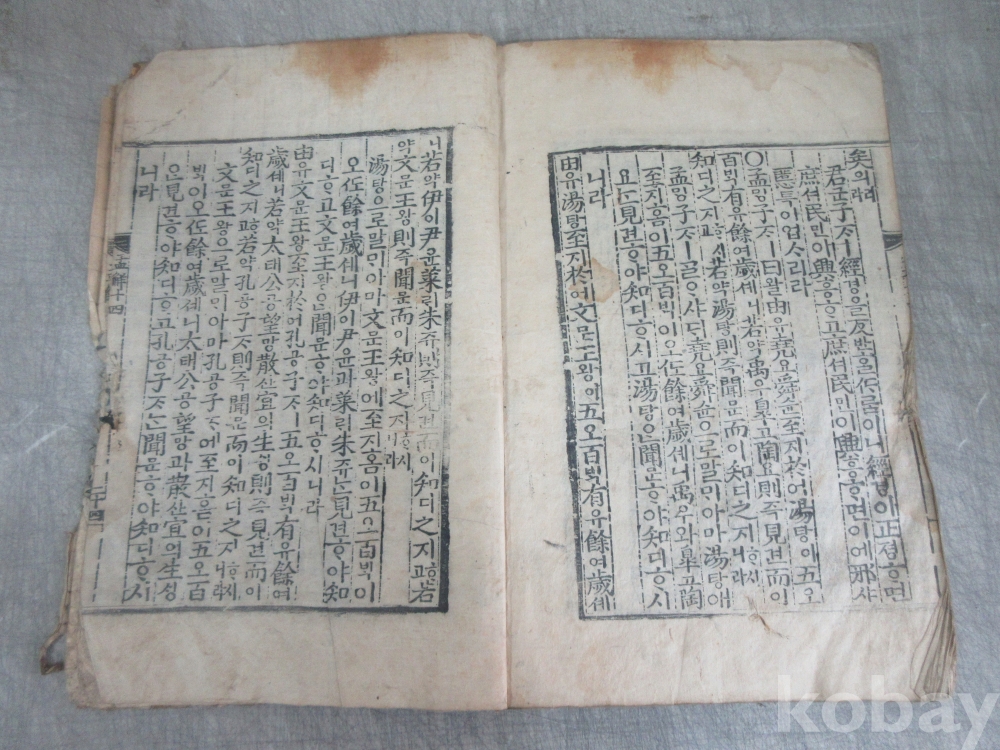 矣의리라
君군子ᄌᆞㅣ經경을反반ᄒᆞᆯᄯᆞᄅᆞᆷ이니經경이正졍ᄒᆞ면
庶셔民민이興흥ᄒᆞ고庶셔民민이興흥ᄒᆞ면이에邪샤
慝특이업스리라
○孟ᄆᆡᆼ子ᄌᆞㅣ曰왈由유堯요舜슌至지於어湯탕이五오
百ᄇᆡᆨ有유餘여歲셰니若약禹우皐고陶요則즉見견而이
知디之지ᄒᆞ고若약湯탕則즉聞문而이知디之지ᄒᆞ시니라
孟ᄆᆡᆼ子ᄌᆞㅣᄀᆞᆯᄋᆞ샤ᄃᆡ堯요舜슌으로말ᄆᆡ아마湯탕애
至지홈이五오百ᄇᆡᆨ이오ᄯᅩ餘여歲셰니禹우와皐고陶
요ᄂᆞᆫ見견ᄒᆞ야知디ᄒᆞ시고湯탕은聞문ᄒᆞ야知디ᄒᆞ시
니라
由유湯탕至지於어文문王왕이五오百ᄇᆡᆨ有유餘여歲셰
니若약伊이尹윤萊ᄅᆡ朱쥬則즉見견而이知디之지ᄒᆞ고若
약文문王왕則즉聞문而이知디之지ᄒᆞ시니라
湯탕으로말ᄆᆡ아마文문王왕에至지홈이五오百ᄇᆡᆨ이
오ᄯᅩ餘여歲셰니伊이尹윤과萊ᄅᆡ朱쥬ᄂᆞᆫ見견ᄒᆞ야知
디ᄒᆞ고文문王왕은聞문ᄒᆞ야知디ᄒᆞ시니라
由유文문王왕至지於어孔공子ᄌᆞㅣ五오百ᄇᆡᆨ有유餘여
歲셰니若약太태公공望망散산宜의生ᄉᆡᆼ則즉見견而이
知디之지ᄒᆞ고若약孔공子ᄌᆞ則즉聞문而이知디之지ᄒᆞ시니라
文문王왕으로말ᄆᆡ아마孔공子ᄌᆞ에至지홈이五오百
ᄇᆡᆨ이오ᄯᅩ餘여歲셰니太태公공望망과散산宜의生ᄉᆡᆼ
은見견ᄒᆞ야知디ᄒᆞ고孔공子ᄌᆞᄂᆞᆫ聞문ᄒᆞ야知디ᄒᆞ시
니라
kobay